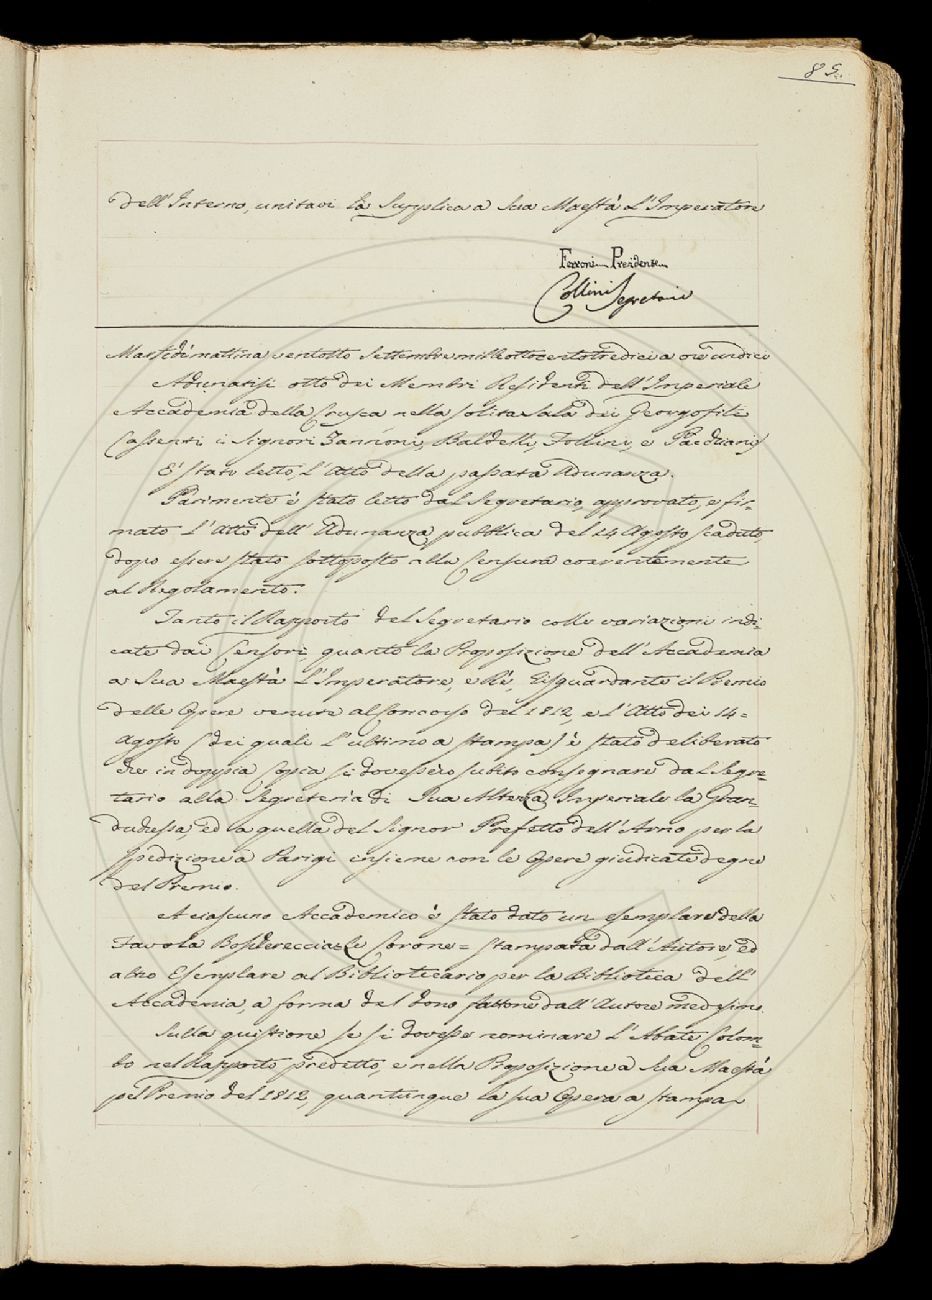 85.
dell'Interno, unitavi la Supplica a Sua Maestà L'Imperatore
Ferroni Presidente
Collini Segretario
Martedì mattina ventotto Settembre mille ottocentotredici a ore undici
Adunatisi otto dei Membri Residenti dell'Imperiale
Accademia della Crusca nella solita Sala dei Georgofili
(assenti i Signori Zannoni, Baldelli, Follini, e Paeduani)
E' stato letto L'Atto della passata Adunanza.
Parimente è stato letto dal Segretario, approvato, e fir-
mato L'Atto dell'Adunanza pubblica del 14 Agosto scaduto,
dopo essere stato sottoposto alla Censura coerentemente
al Regolamento.
Tanto il Rapporto del Segretario colle variazioni indi-
cate dai Censori, quanto la Proposizione dell'Accademia
a Sua Maestà L'Imperatore, e Rè, risguardante il Premio
delle Opere venute al Concorso del 1812, e l'Atto dei 14-
Agosto (dei quali L'ultimo a stampa) è stato deliberato
che in doppia Copia si dovessero subito consegnare dal Segre-
tario alla Segreteria di Sua Altezza Imperiale la Gran-
duchessa, ed a quella del Signor Prefetto dell'Arno per la
spedizione a Parigi insieme con le Opere giudicate degne
del Premio.
A ciascuno Accademico è stato dato un esemplare della
Favola Boschereccia = Le Corone = stampata dall'Autore, ed
altro Esemplare al Bibliotecario per la Biblioteca dell'
Accademia, a forma del dono fattone dall'Autore medesimo.
Sulla quistione se si dovesse nominare L'Abate Colom-
bo nel Rapporto predetto, e nella Proposizione a Sua Maestà
pel Premio del 1812, quantunque la sua Opera a stampa